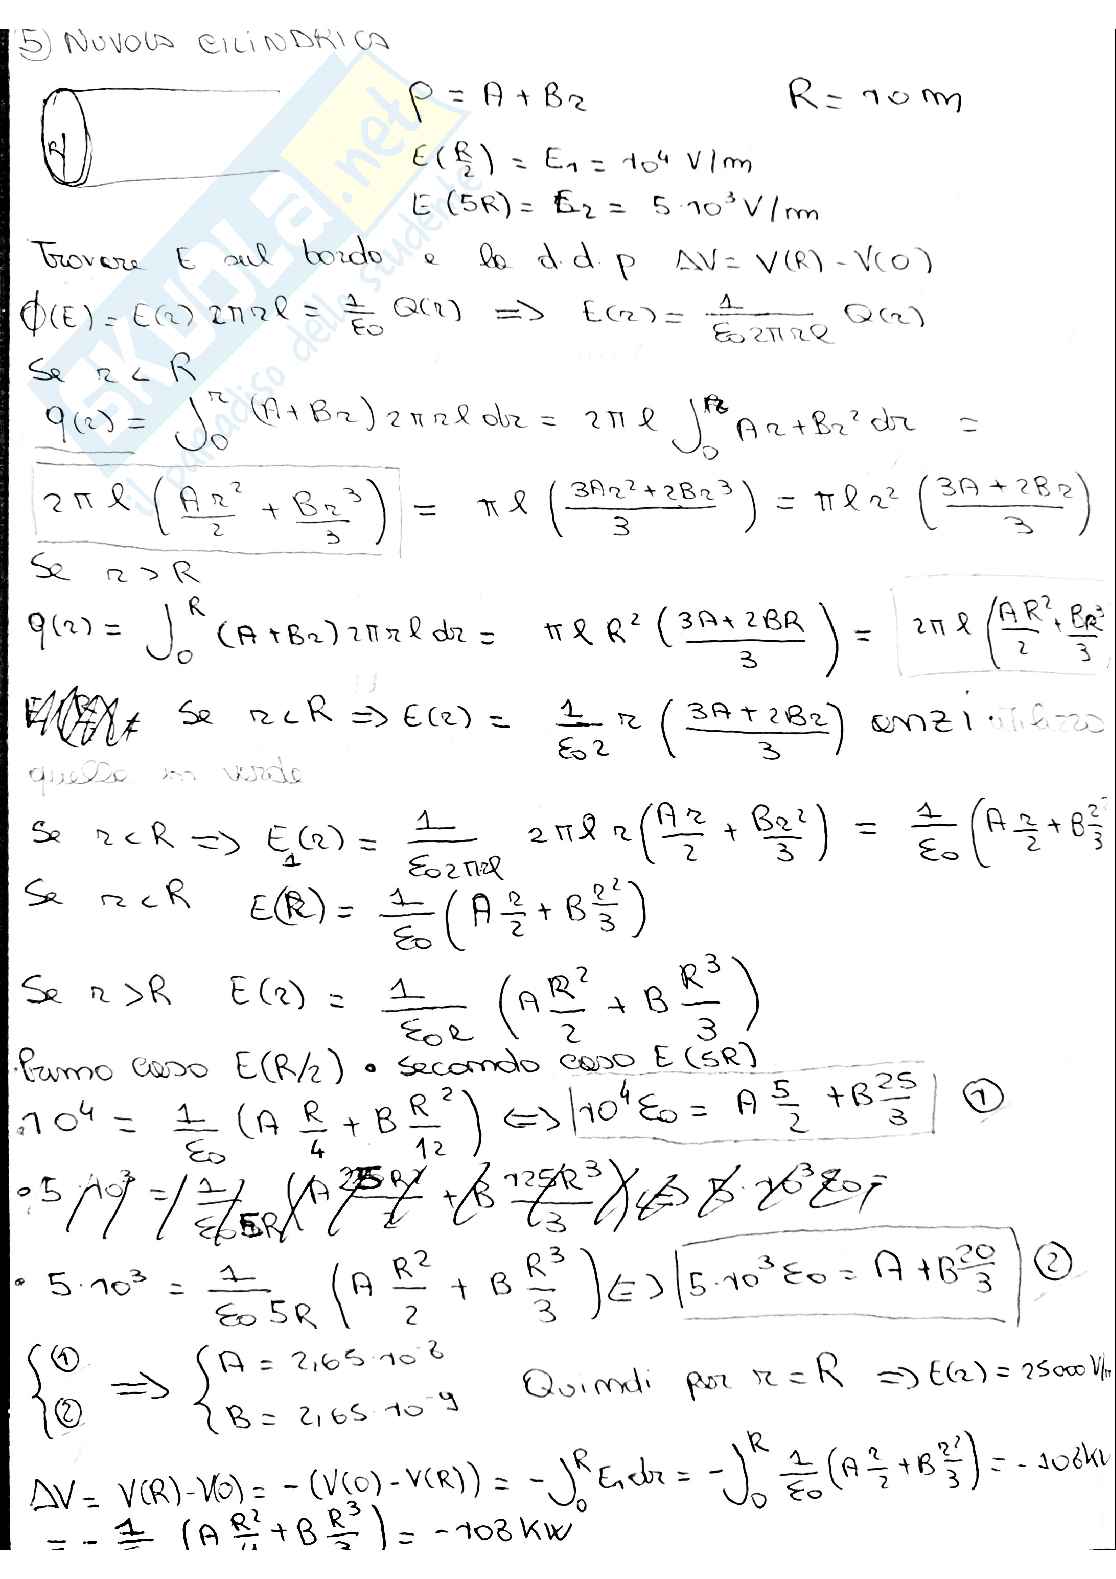 5) NUVOLA CILINDRICA
ρ = A + Br R = 10 m
R
E(R/2) = E1 = 10^4 V/m
E(5R) = E2 = 5·10^3 V/m
Trovare E sul bordo e la d.d.p ΔV = V(R) - V(0)
Φ(E) = E(r) 2πrl = 1/ε0 Q(r) => E(r) = 1/(ε0 2πrl) Q(r)
Se r < R
q(r) = ∫_0^r (A+Br) 2πrl dr = 2πl ∫_0^r Ar + Br^2 dr =
2πl (Ar^2/2 + Br^3/3) = πl ((3Ar^2+2Br^3)/3) = πlr^2 ((3A+2Br)/3)
Se r > R
q(r) = ∫_0^R (A+Br) 2πrl dr = πlR^2 ((3A+2BR)/3) = 2πl (AR^2/2 + BR^3/3
Se r<R => E(r) = 1/(ε0 2) r ((3A+2Br)/3) anzi utilizzo
quella in verde
Se r<R => E1(r) = 1/(ε0 2πrl) 2πlr (Ar/2 + Br^2/3) = 1/ε0 (A r/2 + B r^2/3
Se r<R E(r) = 1/ε0 (A r/2 + B r^2/3)
Se r>R E(r) = 1/(ε0 r) (A R^2/2 + B R^3/3)
·Primo caso E(R/2) • secondo caso E(5R)
·10^4 = 1/ε0 (A R/4 + B R^2/12) <=> 10^4 ε0 = A 5/2 + B 25/3 ①
• 5·10^3 = 1/(ε0 5R) (A 25R^2/2 + B 125R^3/3) <=> 5·10^3 ε0 =
• 5·10^3 = 1/(ε0 5R) (A R^2/2 + B R^3/3) <=> 5·10^3 ε0 = A + B 20/3 ②
{ ① ② => { A = 2,65·10^-8 B = 2,65·10^-9 Quindi per r = R => E(r) = 25000 V/m
ΔV = V(R)-V(0) = -(V(0)-V(R)) = -∫_0^R E1 dr = -∫_0^R 1/ε0 (A r/2 + B r^2/3) = -108 kV
= - 1/ε0 (A R^2/4 + B R^3/3) = -108 KW
SKUOLA.net
il paradiso dello studente